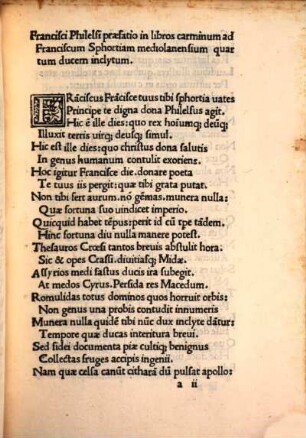 Francisci Philelfi præfatio in libros carminum ad
Franciscum Sphortiam mediolanensium quar
tum ducem inclytum.
FRāciscus Frācisce tuus tibi sphortia uates
Principe te digna dona Philelfus agit.
Hic ē ille dies: quo rex hoiumq; deūq;
Illuxit terris uirq; deusq; simul.
Hic est ille dies: quo christus dona salutis
In genus humanum contulit exoriens.
Hoc igitur Francisce die donare poeta
Te tuus iis pergit: quæ tibi grata putat.
Non tibi fert aurum. nō gēmas. munera nulla:
Quæ fortuna suo uindicet imperio.
Quicquid habet tēpus: perit id cū tpe tādem.
Hinc fortuna diu nulla manere potest.
Thesauros Crœsi tantos breuis abstulit hora:
Sic & opes Crassi. diuitiasq; Midæ.
Assyrios medi fastus ducis ira subegit.
At medos Cyrus. Persida res Macedum.
Romulidas totus dominos quos horruit orbis:
Non genus una probis contudit innumeris
Munera nulla quidē tibi nūc dux inclyte dātur:
Tempore quæ ducas interitura breui.
Sed fidei documenta piæ cultiq; benignus
Collectas fruges accipis ingenii.
Nam quæ celsa canūt citharā dū pulsat apollo:
a ii